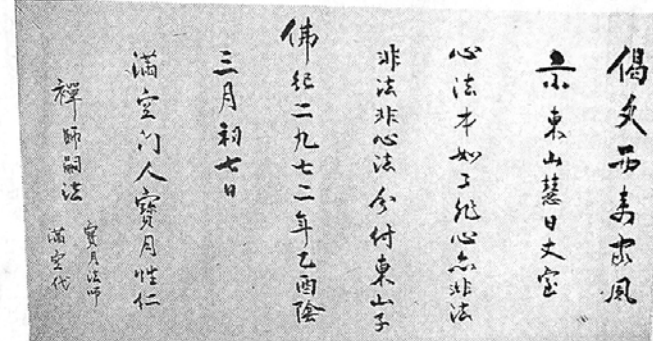 偈文西來家風
示東山慧日丈室
心法本如了非心亦非法
非法非心法分付東山子
佛紀二九七二年乙酉陰
三月初七日
滿空门人寶月性仁
禪師嗣法
寶月法师
滿空代